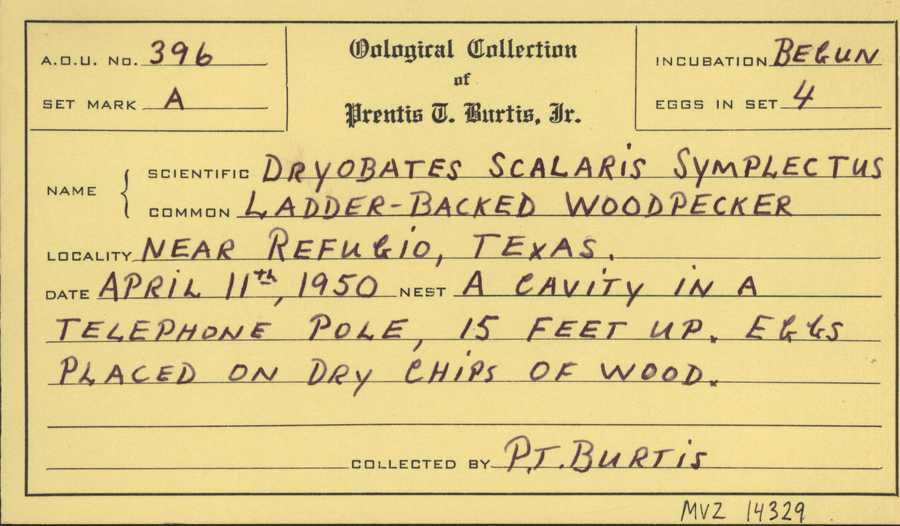 A.O.U. No. 396
SET MARK A
Oological Collection
of
Prentis T. Burtis, Jr.
INCUBATION BEGUN
EGGS IN SET 4
NAME
SCIENTIFIC DRYOBATES SCALARIS SYMPLECTUS
COMMON LADDER-BACKED WOODPECKER
LOCALITY NEAR REFUGIO, TEXAS.
DATE APRIL 11th, 1950 NEST A CAVITY IN A
TELEPHONE POLE, 15 FEET UP. EGGS
PLACED ON DRY CHIPS OF WOOD.
COLLECTED BY P.T. BURTIS
MVZ 14329